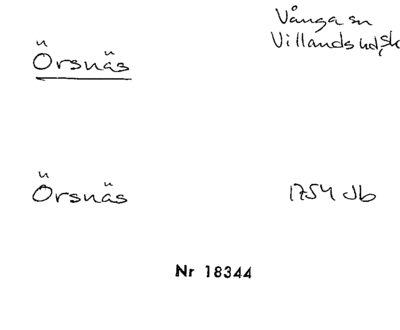 Vånga sn
Örsnäs Villands hd, sk
Örsnäs 1754 Jb
Nr 18344